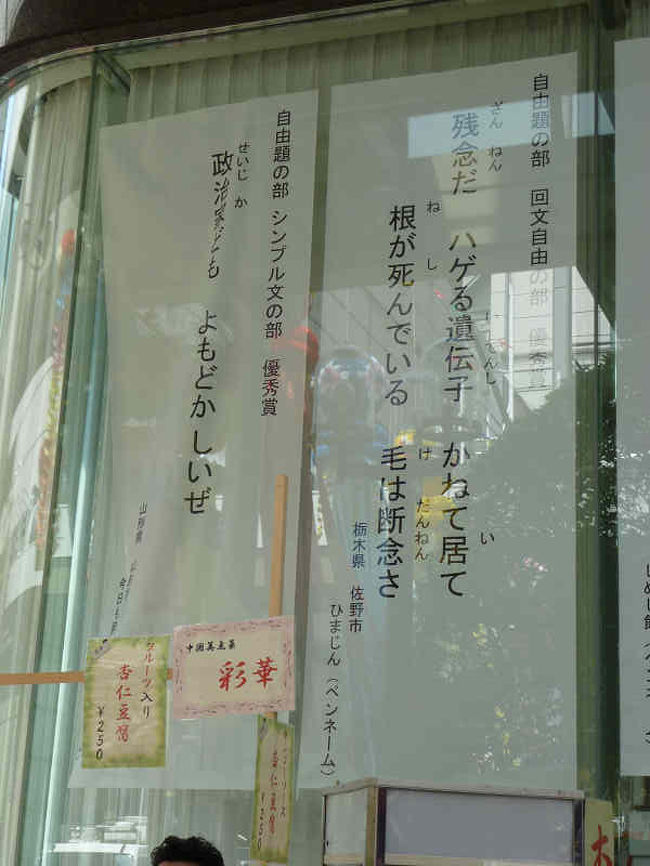 自由題の部 回文自由の部 優秀賞
ざん ねん
残念だ ハゲる遺伝子 かねて居て
いでんし
い
ね し
根が死んでいる 毛は断念さ
け だんねん
栃木県 佐野市
ひまじん（ペンネーム）
自由題の部 シンプル文の部 優秀賞
せいじ か
政治家ども よもどかしいぜ
山形県
中国萬点菓
彩華
フルーツ入り
杏仁豆腐
￥250
杏仁豆腐
￥250